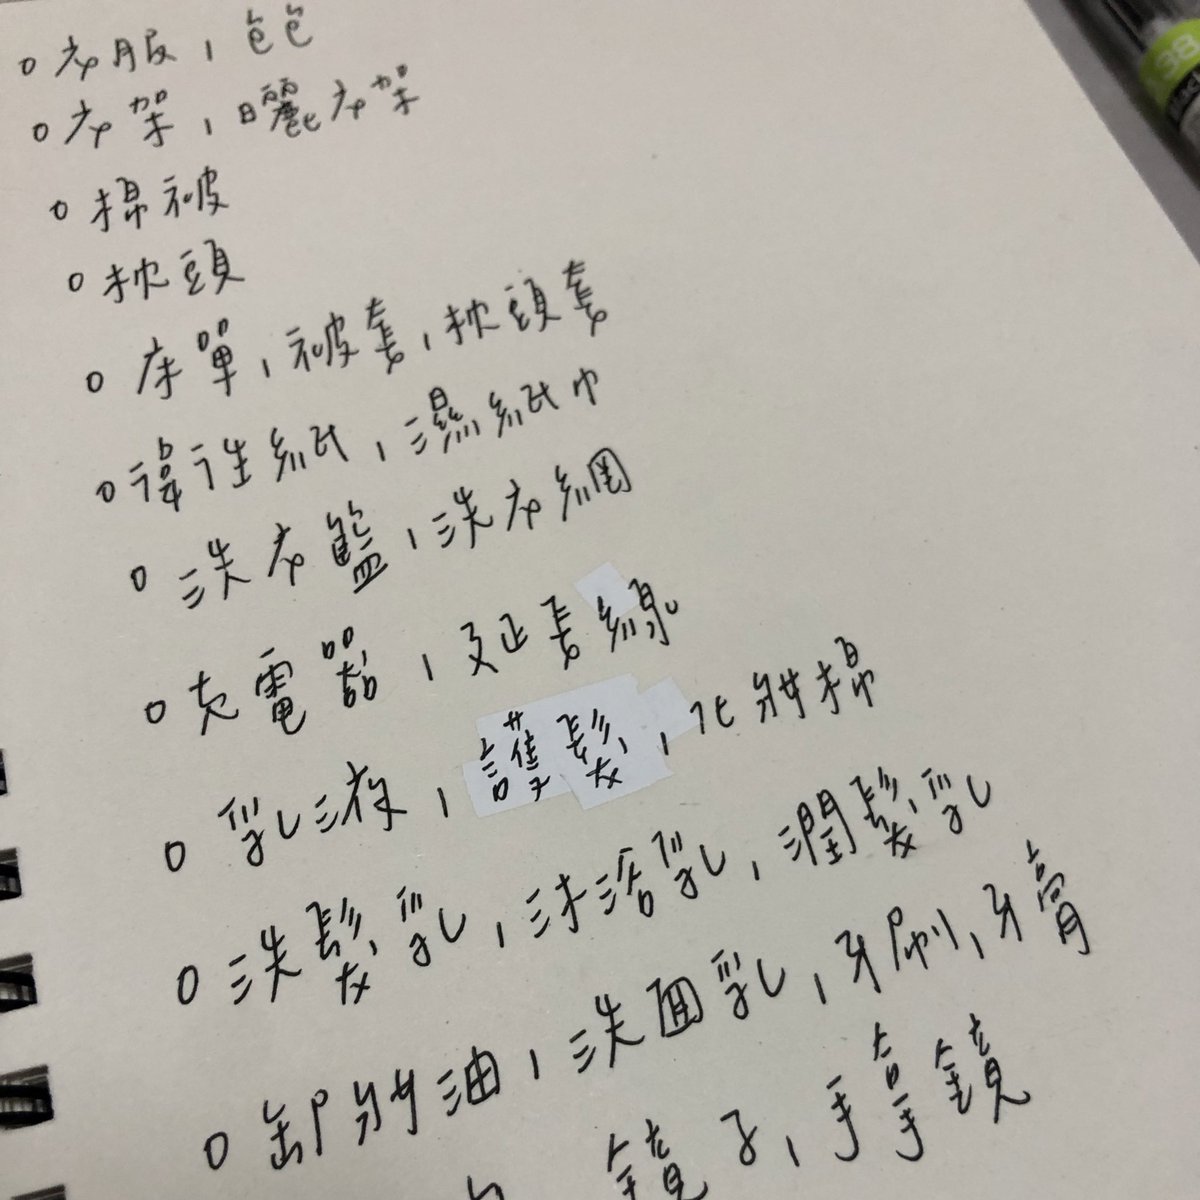 衣服,包包
衣架,曬衣架
棉被
枕頭
床單,被套,枕頭套
衛生紙,濕紙巾
洗衣籃,洗衣網
充電器,延長線
乳液,護髮,化妝棉
洗髮乳,沐浴乳,潤髮乳
卸妝油,洗面乳,牙刷,牙膏
鏡子,手拿鏡
38